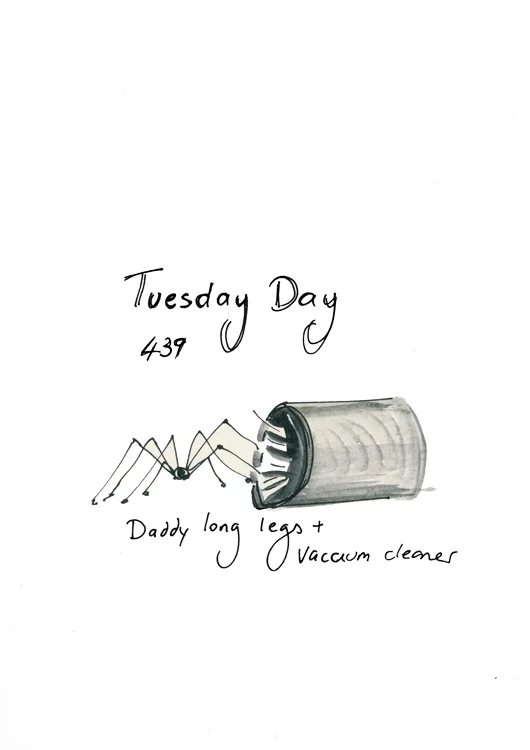 Tuesday Day
439
Daddy long legs +
Vaccuum cleaner